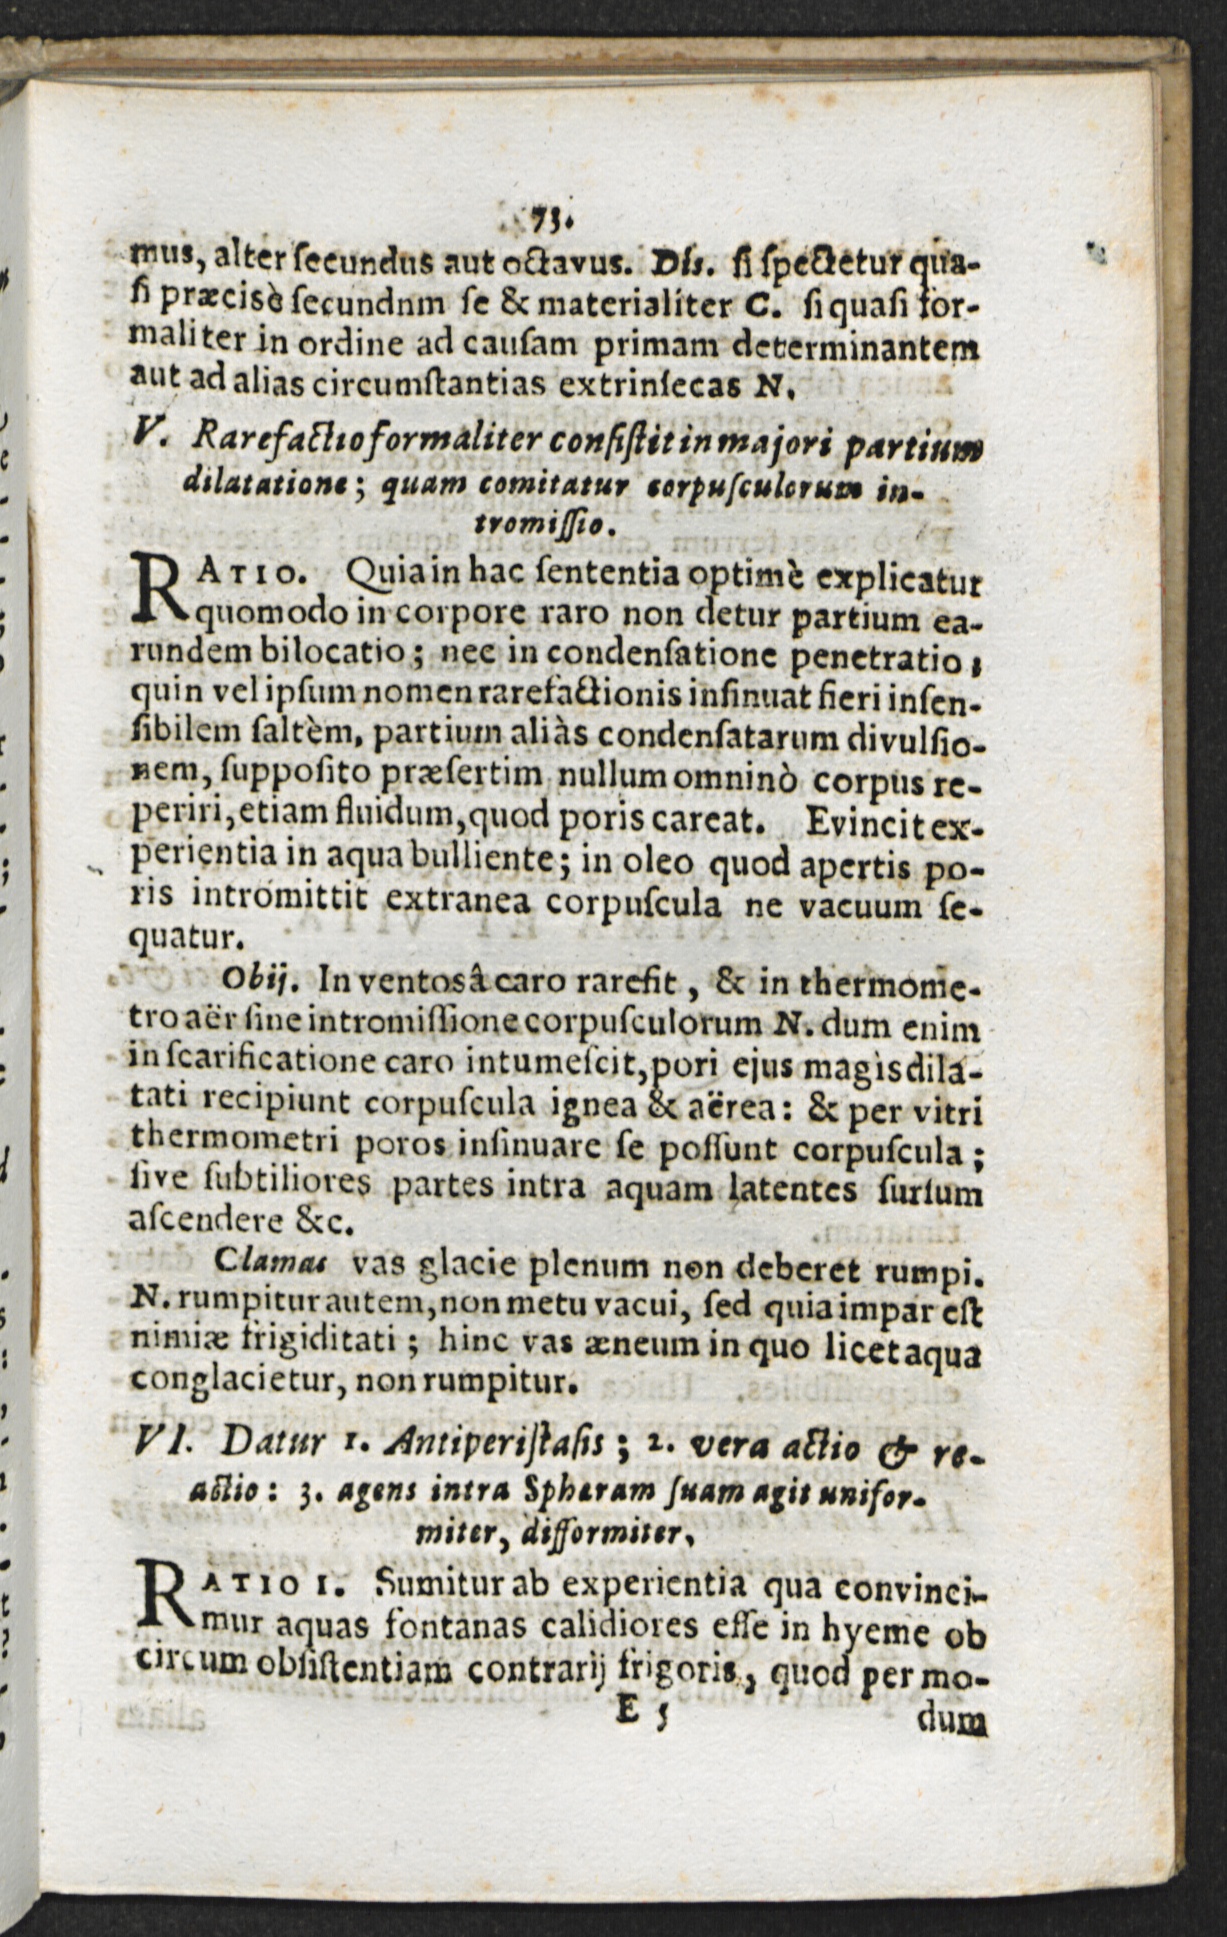 73.
mus, alter ſecundus aut octavus. Dis. ſi ſpectetur qua-
ſi præcisè ſecundnm ſe & materialiter C. ſi quaſi for-
maliter in ordine ad cauſam primam determinantem
aut ad alias circumſtantias extrinſecas N.
V. Rarefactio formaliter conſiſtit in majori partium
dilatatione; quam comitatur corpuſculorum in-
tromiſſio.
RATIO. Quia in hac ſententia optimè explicatur
quomodo in corpore raro non detur partium ea-
rundem bilocatio; nec in condenſatione penetratio;
quin vel ipſum nomen rarefactionis inſinuat fieri inſen-
ſibilem ſaltèm, partium aliàs condenſatarum divulſio-
nem, ſuppoſito præſertim nullum omninò corpus re-
periri, etiam fluidum, quod poris careat. Evincit ex-
perientia in aqua bulliente; in oleo quod apertis po-
ris intromittit extranea corpuſcula ne vacuum ſe-
quatur.
Obij. In ventosâ caro rarefit, & in thermome-
tro aër ſine intromiſſione corpuſculorum N. dum enim
in ſcarificatione caro intumeſcit, pori ejus magis dila-
tati recipiunt corpuſcula ignea & aërea: & per vitri
thermometri poros inſinuare ſe poſſunt corpuſcula;
ſive ſubtiliores partes intra aquam latentes ſurſum
aſcendere &c.
Clamas vas glacie plenum non deberet rumpi.
N. rumpitur autem, non metu vacui, ſed quia impar eſt
nimiæ frigiditati; hinc vas æneum in quo licet aqua
conglacietur, non rumpitur.
VI. Datur 1. Antiperiſtaſis; 2. vera actio & re-
actio: 3. agens intra Spharam ſuam agit unifor-
miter, difformiter.
RATIO I. Sumitur ab experientia qua convinci-
mur aquas fontanas calidiores eſſe in hyeme ob
circum obſiſtentiam contrarij frigoris, quod per mo-
E 5 dum